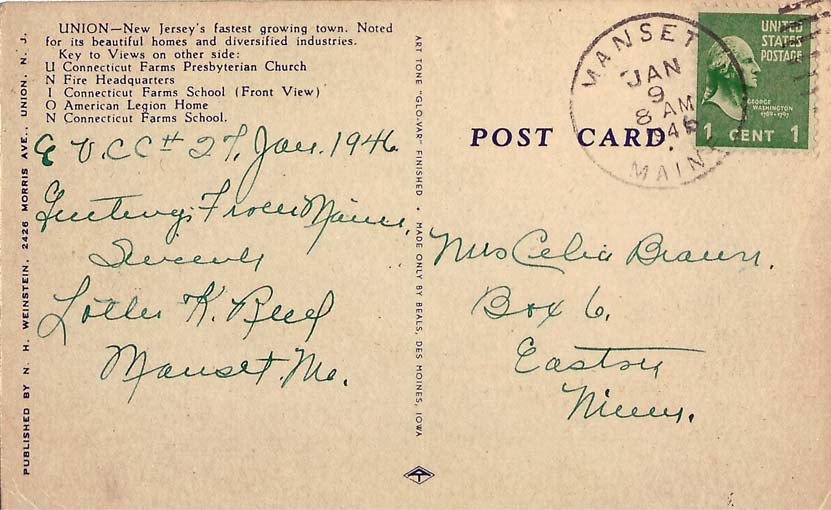 UNION—New Jersey's fastest growing town. Noted
for its beautiful homes and diversified industries.
Key to Views on other side:
U Connecticut Farms Presbyterian Church
N Fire Headquarters
I Connecticut Farms School (Front View)
O American Legion Home
N Connecticut Farms School.
V.C.C # 27, Jan. 1946
Greetings From Maine.
Sincerely
Lottie K. Reed
Manset. Me.
PUBLISHED BY N. H. WEINSTEIN, 2426 MORRIS AVE., UNION, N. J.
ART TONE "GLO-VAR" FINISHED • MADE ONLY BY BEALS, DES MOINES, IOWA
POST CARD
MANSET
JAN
9
8 AM
MAINE
UNITED
STATES
POSTAGE
GEORGE
WASHINGTON
1789-1797
1 CENT 1
Mrs Celia Braun.
Box 6.
Easton
Minn.